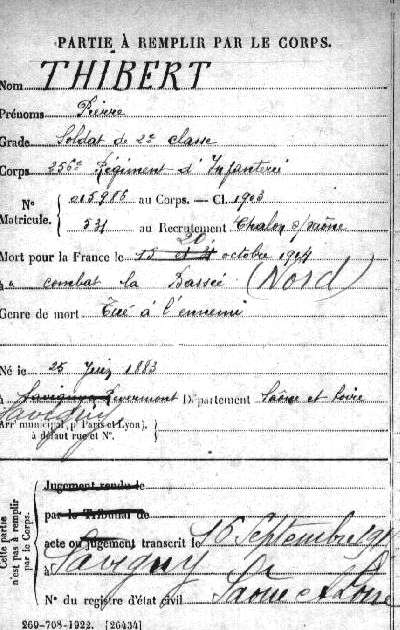 PARTIE À REMPLIR PAR LE CORPS.
Nom THIBERT
Prénoms Pierre
Grade Soldat de 2e classe
Corps 256e Régiment d'Infanterie
N° Matricule. 015986 au Corps. — Cl. 1903
531 au Recrutement Chalon s/Saône
20
Mort pour la France le 15 et octobre 1914
à combat la Bassée (Nord)
Genre de mort Tué à l'ennemi
Né le 25 Juin 1883
à Savigny Revermont Département Saône et Loire
Savigny
Arrt municipal (pr Paris et Lyon),
à défaut rue et N°.
Cette partie n'est pas à remplir par le Corps.
Jugement rendu le
par le Tribunal de
acte ou jugement transcrit le 15 Septembre
à Savigny
N° du registre d'état civil Saône et Loire
269-708-1922. [26434]